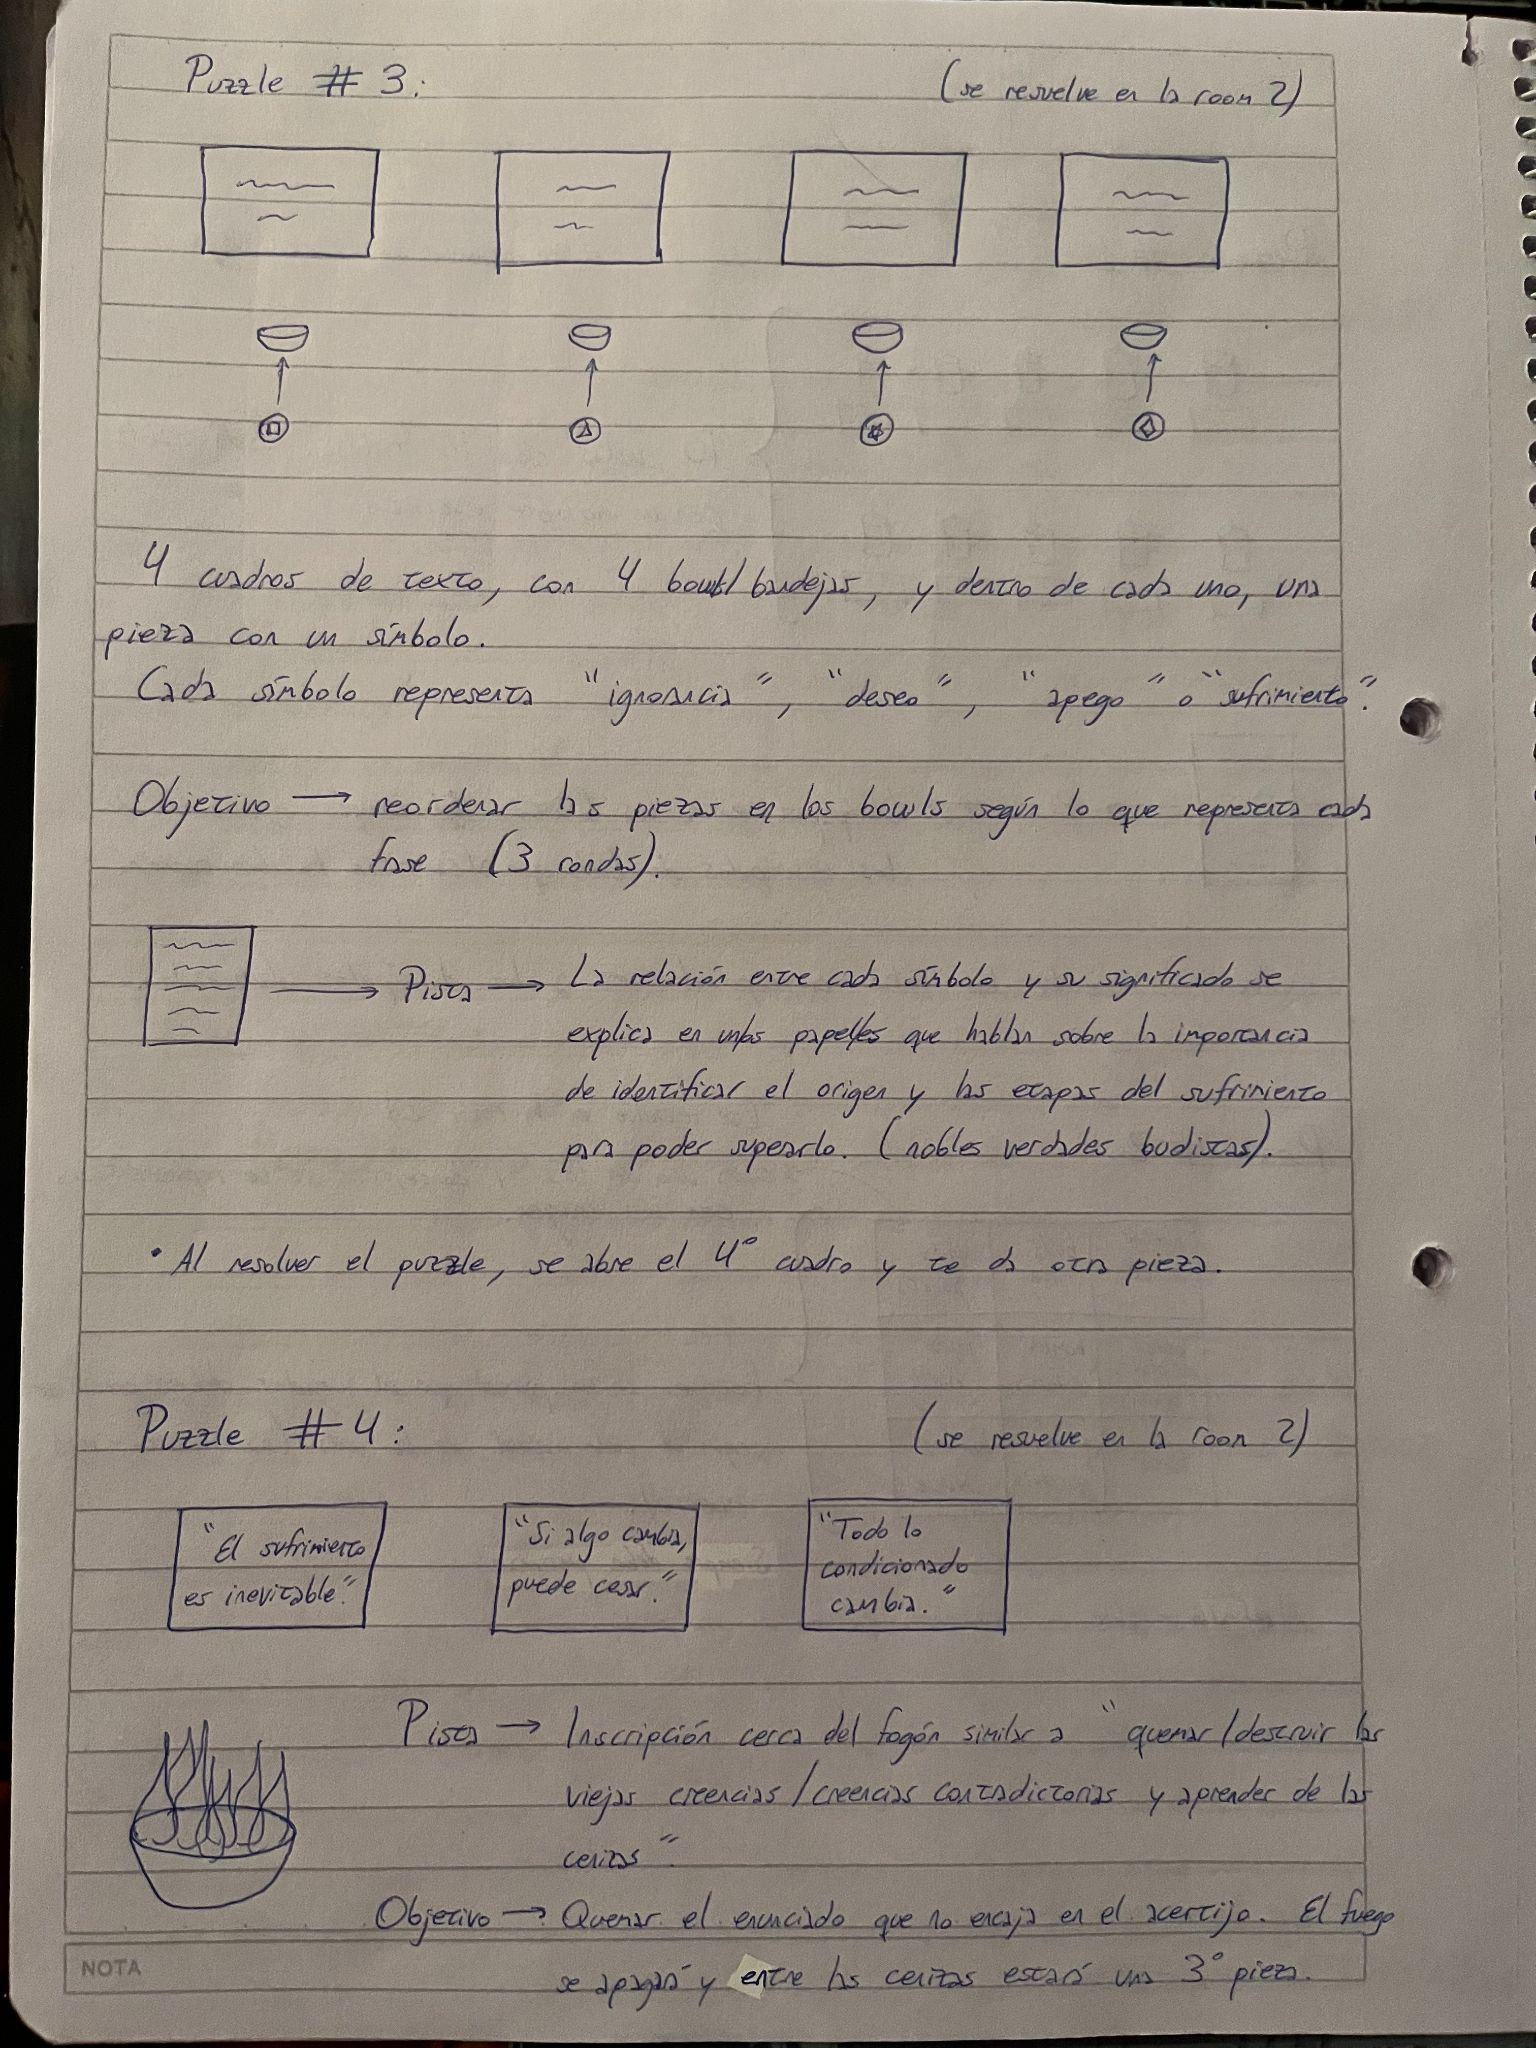 Puzzle # 3:
(se resuelve en la room 2)
4 cuadros de texto, con 4 bowls/bandejas, y dentro de cada uno, una
pieza con un símbolo.
Cada símbolo representa "ignorancia", "deseo", "apego" o "sufrimiento".
Objetivo → reordenar las piezas en los bowls según lo que representa cada
frase (3 rondas).
Pista → La relación entre cada símbolo y su significado se
explica en un/os papel/es que hablan sobre la importancia
de identificar el origen y las etapas del sufrimiento
para poder superarlo. (nobles verdades budistas).
• Al resolver el puzzle, se abre el 4° cuadro y te da otra pieza.
Puzzle # 4:
(se resuelve en la room 2)
"El sufrimiento
es inevitable."
"Si algo cambia,
puede cesar."
"Todo lo
condicionado
cambia."
Pista → Inscripción cerca del fogón similar a "quemar/destruir las
viejas creencias/creencias contradictorias y aprender de las
cenizas".
Objetivo → Quemar el enunciado que no encaja en el acertijo. El fuego
se apagará y entre las cenizas estará una 3° pieza.
NOTA